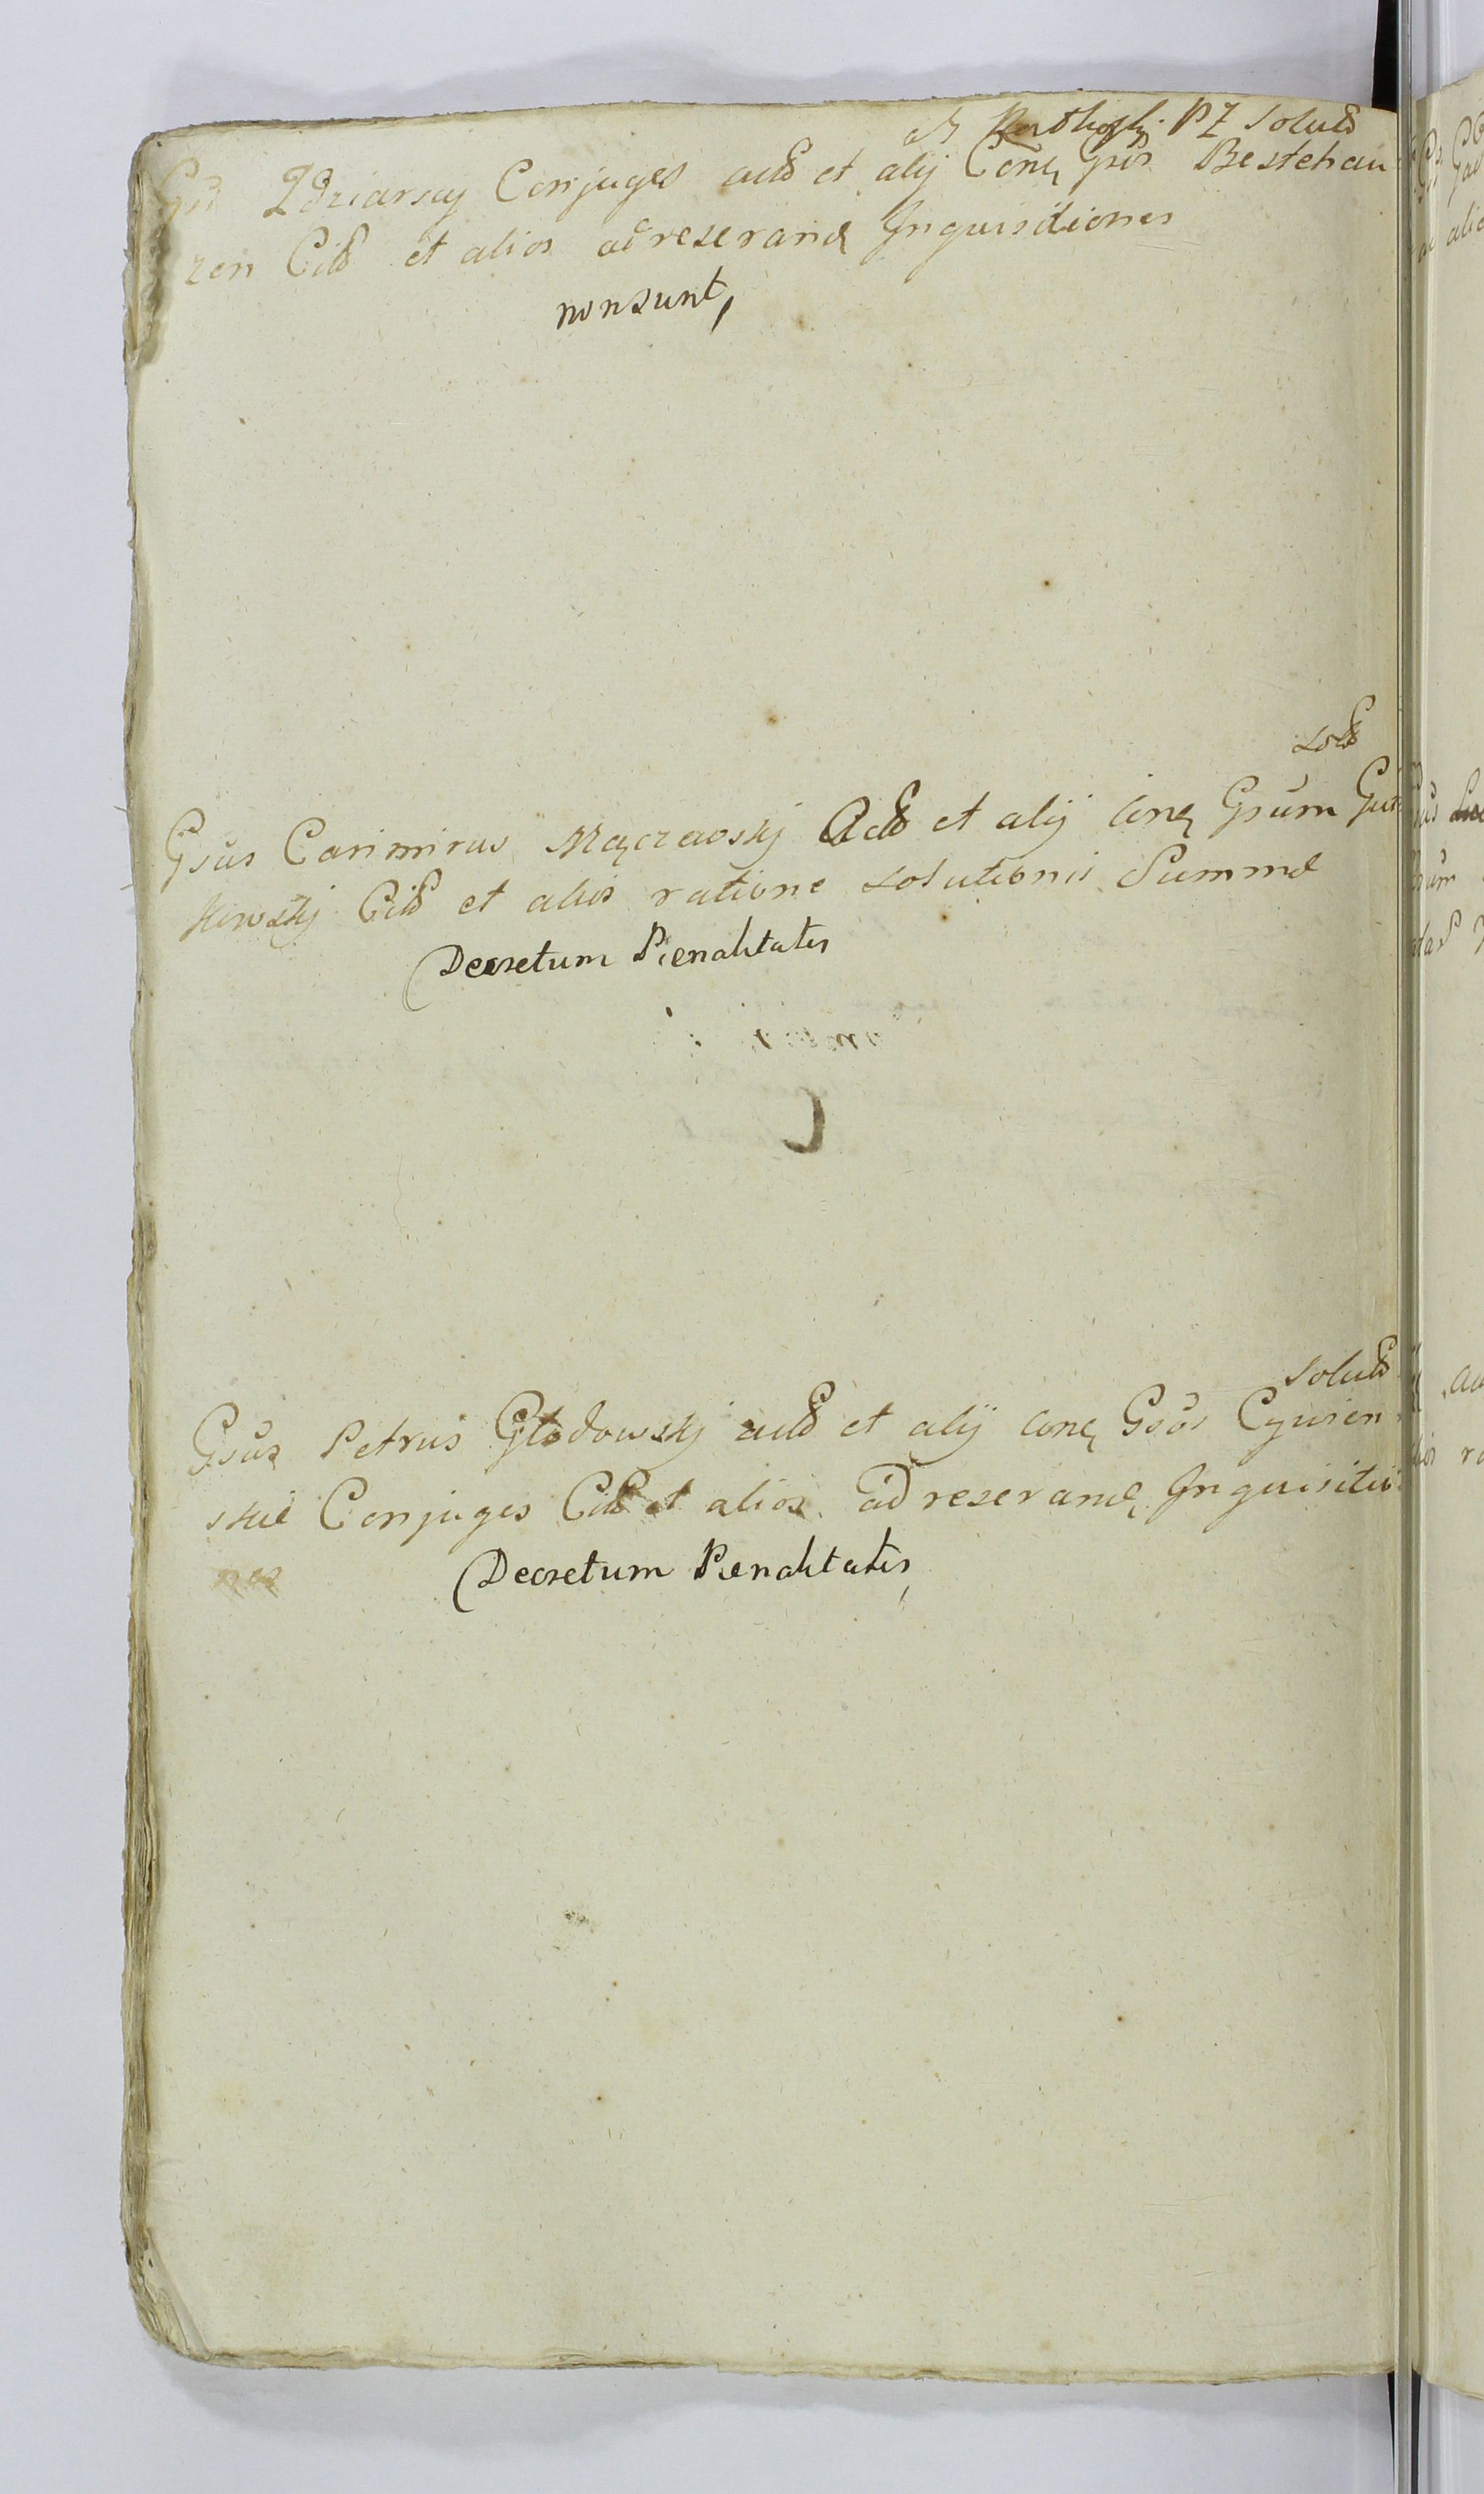 PZ Solut
Gsi Zdziarscy Conjuges act et alij Conq Gsos Bestchau
zen Cit et alios ad reserand Inquisitiones
non sunt,
Solt
Gsus Casimirus Mączewskj Act et alij Conq Gsum Gut
kowskj Cit et alios ratione solutionis Summæ
Decretum Pænalitatis
Solut
Gsus Petrus Głodowskj act et alij Conq Gsos
skie Conjuges Cit et alios ad reserand Inquisitio
nes Decretum Pænalitatis